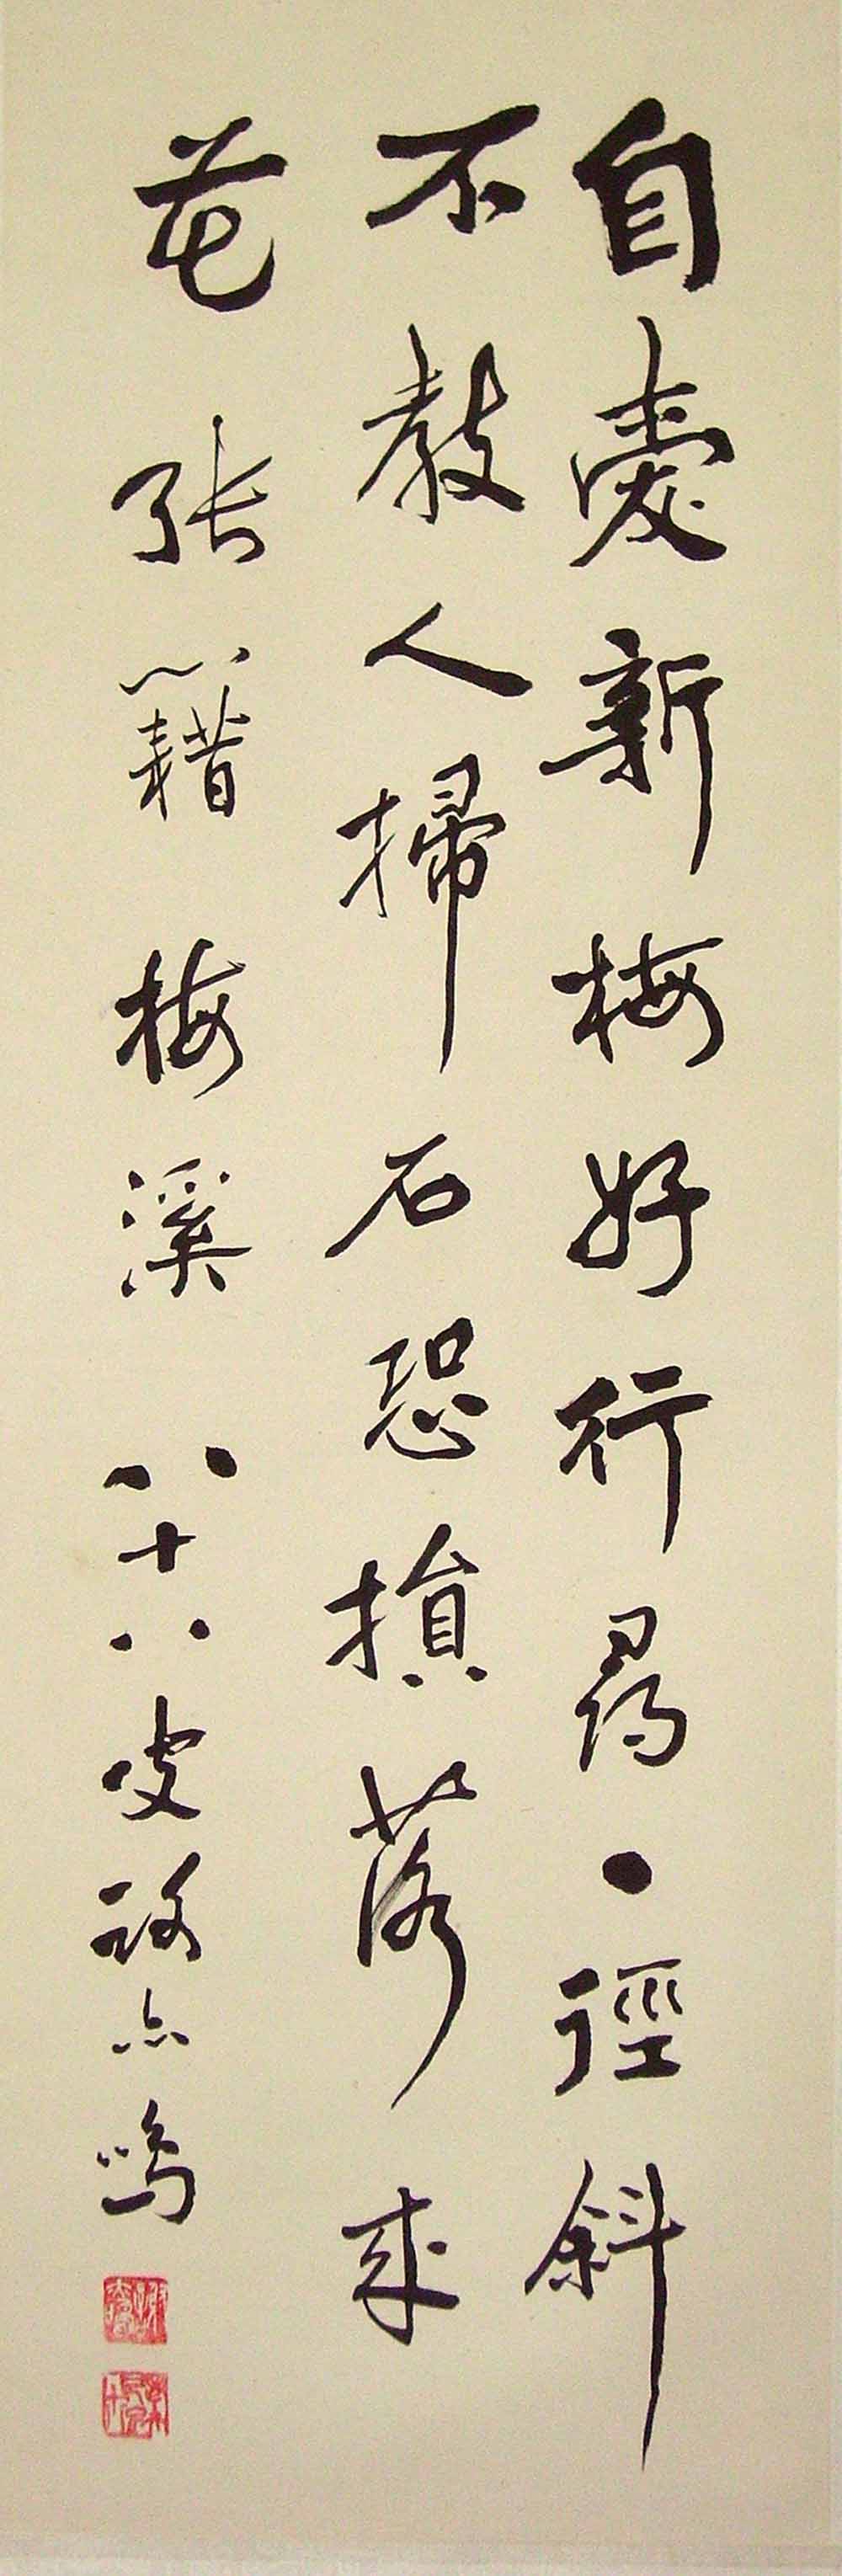 自愛新梅好行尋一徑斜
不教人掃石恐損落來
花 張籍 梅溪 八十八叟